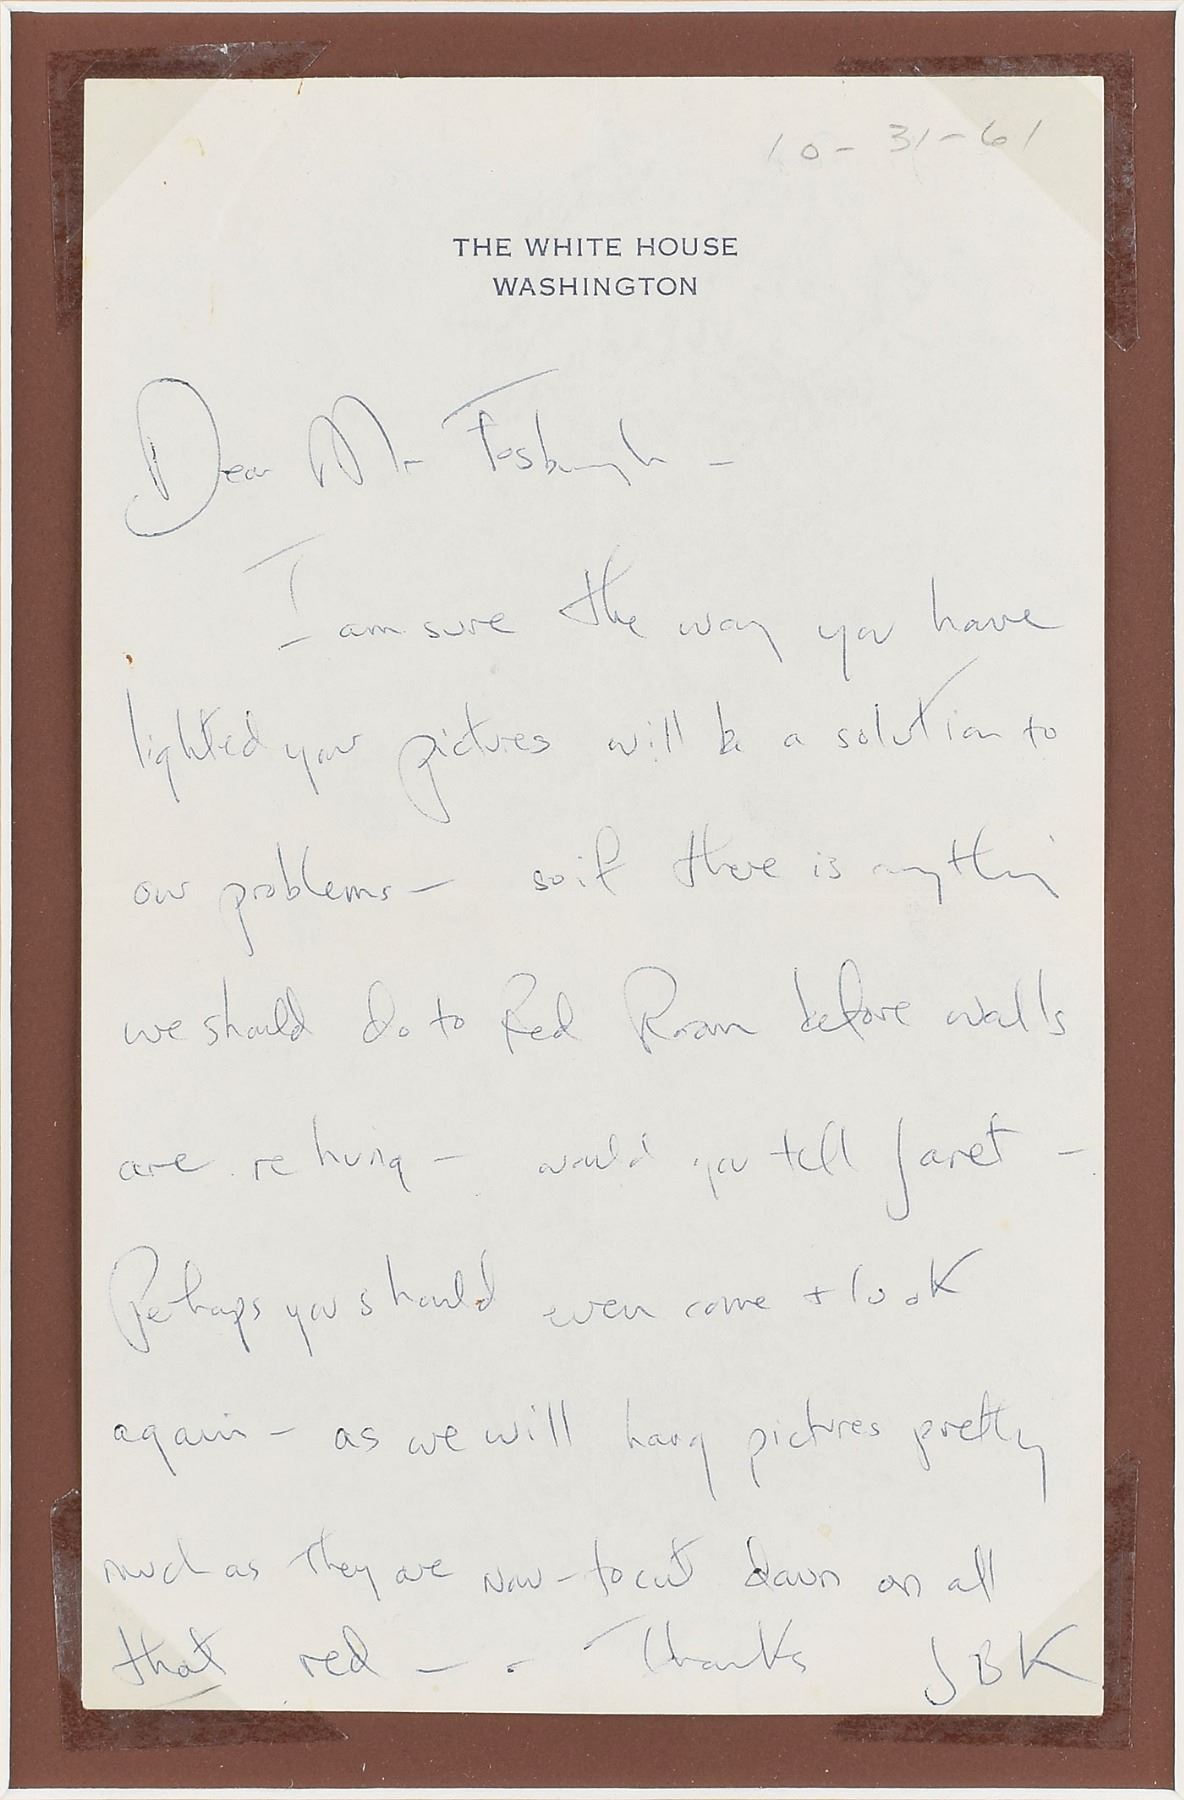 10-31-61
THE WHITE HOUSE
WASHINGTON
Dear Mr Fosburgh –
I am sure the way you have
lighted your pictures will be a solution to
our problems – so if there is anything
we should do to Red Room before walls
are rehung – would you tell Janet –
Perhaps you should even come + look
again – as we will hang pictures pretty
much as they are now – to cut down on all
that red – . Thanks JBK